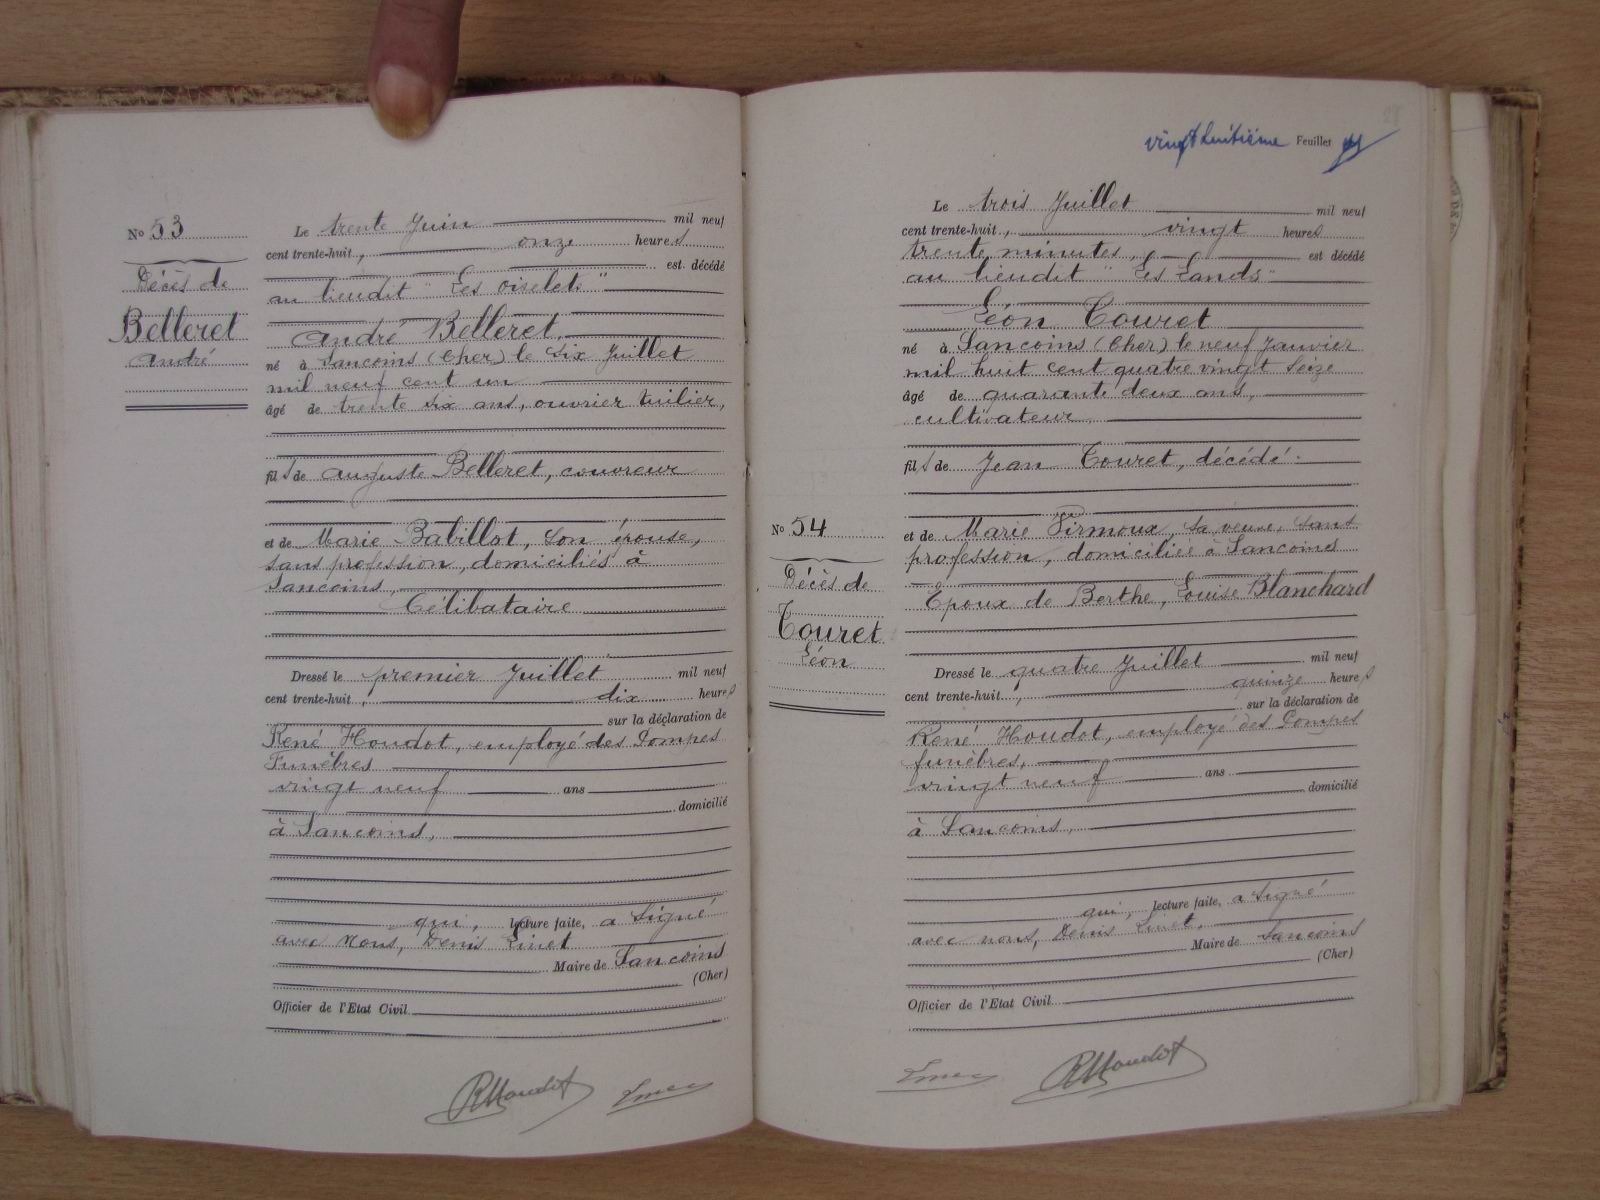 No 53
Décès de
Belleret
André
Le trente Juin mil neuf
cent trente-huit, onze heures
est décédé
au lieudit " Les oiselets "
André Belleret,
né à Sancoins (Cher) le six Juillet
mil neuf cent un
âgé de trente six ans, ouvrier tuilier,
fils de Auguste Belleret, couvreur
et de Marie Babillot, son épouse,
sans profession, domiciliés à
Sancoins,
Célibataire
Dressé le premier Juillet mil neuf
cent trente-huit, dix heures
sur la déclaration de
René Houdot, employé des Pompes
Funèbres
vingt neuf ans
domicilié
à Sancoins,
qui, lecture faite, a signé
avec Nous, Denis
Maire de Sancoins
(Cher)
Officier de l'Etat Civil
RHoudot
vingt huitième Feuillet
28
No 54
Décès de
Touret
Léon
Le trois Juillet mil neuf
cent trente-huit, vingt heures
trente minutes, est décédé
au lieudit " Les Lands "
Léon Touret
né à Sancoins (Cher) le neuf Janvier
mil huit cent quatre vingt seize
âgé de quarante deux ans,
cultivateur
fils de Jean Touret, décédé
et de Marie Pirmoux, sa veuve, sans
profession, domiciliée à Sancoins
Epoux de Berthe, Louise Blanchard
Dressé le quatre Juillet mil neuf
cent trente-huit, quinze heures
sur la déclaration de
René Houdot, employé des Pompes
funèbres,
vingt neuf ans
domicilié
à Sancoins,
qui, lecture faite, a signé
avec nous, Denis
Maire de Sancoins
(Cher)
Officier de l'Etat Civil
RHoudot